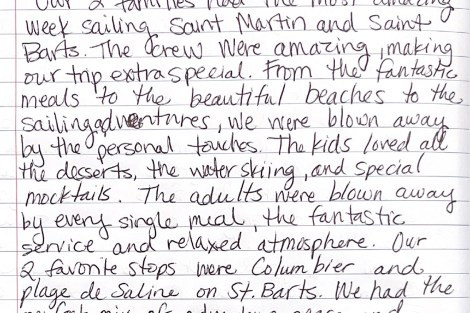 Our 2 families had the most amazing
week sailing Saint Martin and Saint
Barts. The Crew were amazing, making
our trip extra special. From the fantastic
meals to the beautiful beaches to the
sailing adventures, we were blown away
by the personal touches. The kids loved all
the desserts, the water skiing, and special
mocktails. The adults were blown away
by every single meal, the fantastic
service and relaxed atmosphere. Our
2 favorite stops were Columbier and
plage de Saline on St. Barts. We had the